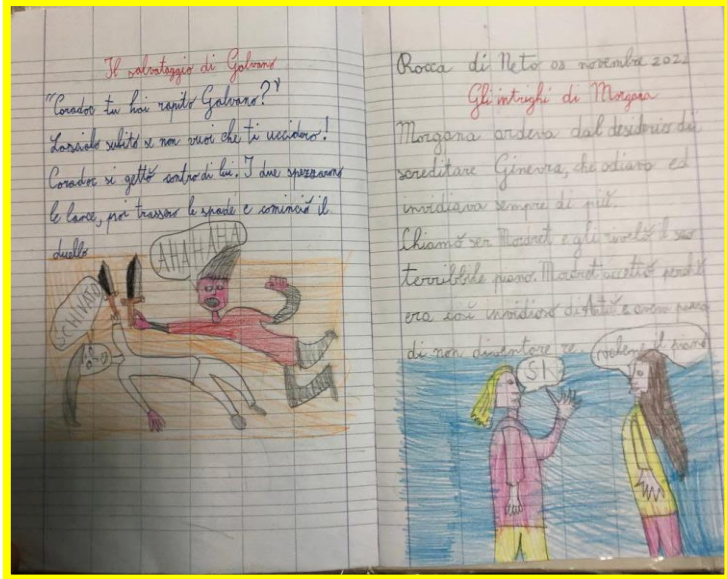 Il salvataggio di Galvano
"Corador tu hai rapito Galvano?"
Lascialo subito se non vuoi che ti uccidero!
Corador si gettò contro di lui. I due spezzarono
le lance, poi trassero le spade e cominciò il
duello
AHAHAHA
SCHIVATO
Rocca di Neto 03 novembre 202
Gli intrighi di Morgana
Morgana ardeva dal desiderio di
screditare Ginevra, che odiava ed
invidiava sempre di più.
Chiamò ser Mordret e gli rivelò il suo
terribile piano. Mordret accettò perchè
era così invidioso di Artù e aveva paura
di non diventare re.
SI
il piano